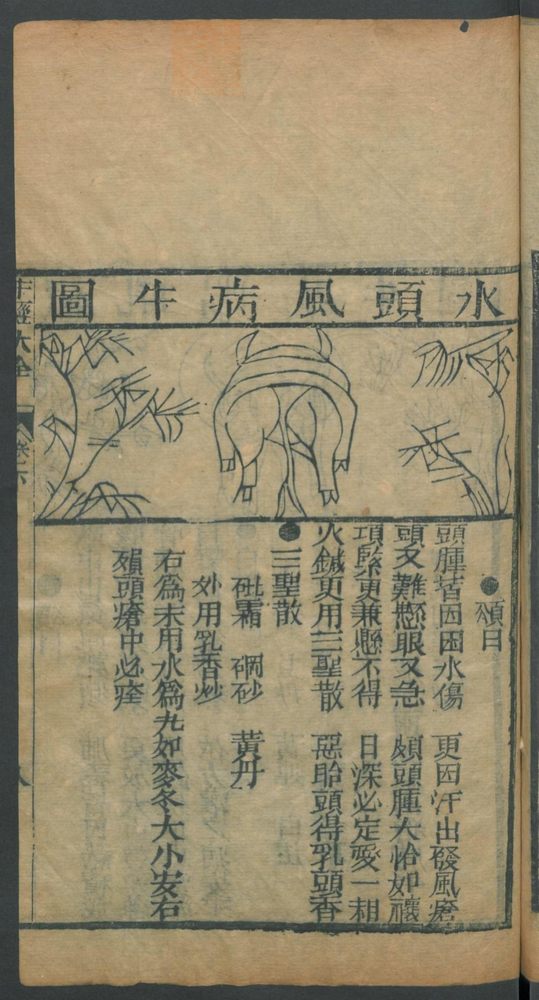 水頭風病牛圖
●頌曰
頭腫皆因困水傷 更因汗出發風瘡
頭又難𢣷眼又急 頰頭腫大恰如禳
項緊更兼懸不得 日深必定變一相
火鍼更用三聖散 惡胎頭得乳頭香
●三聖散
砒霜 硇砂 黃丹
外用乳香炒
右為末用水為丸如麥冬大小安右
頰頭瘡中必痊
牛經大全 卷六 八